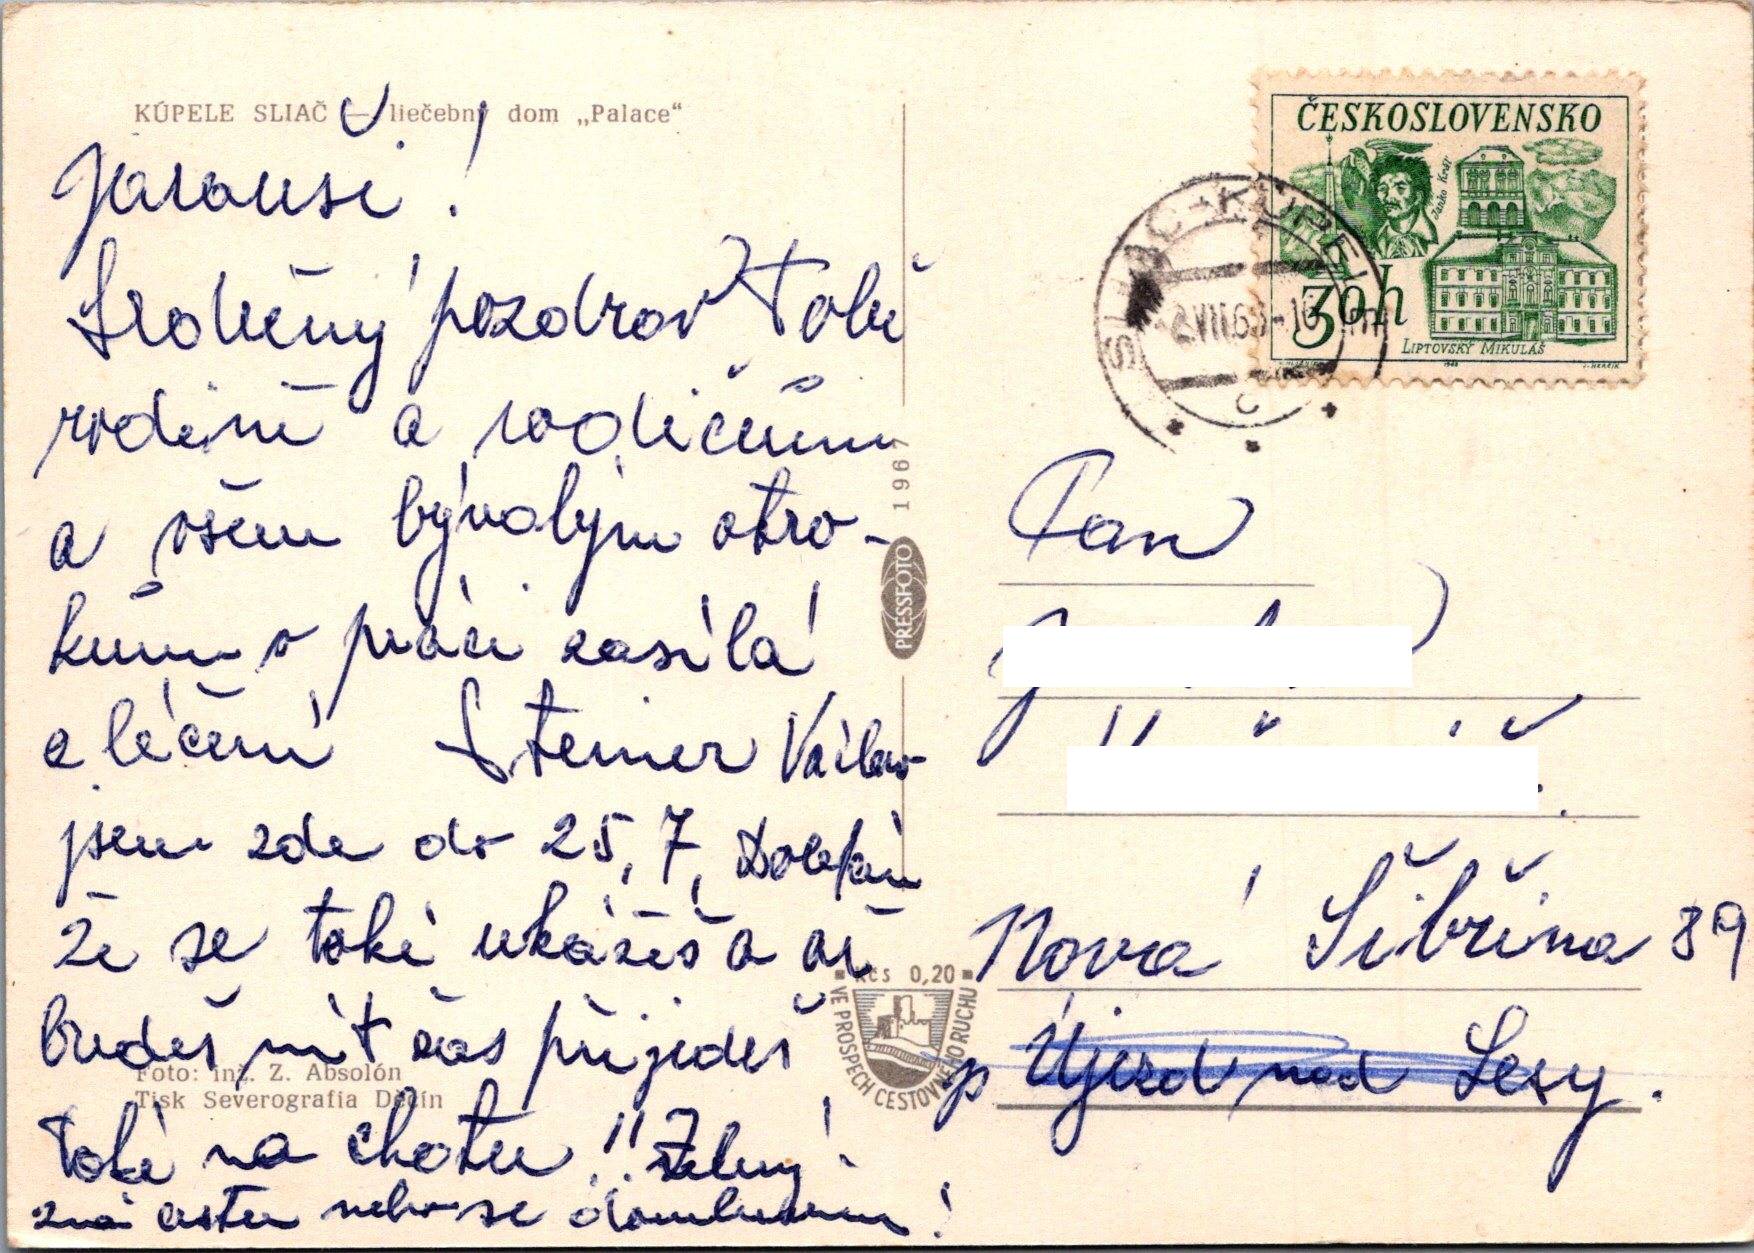 KÚPELE SLIAČ – liečebný dom „Palace“
Jarouši !
Srdečný pozdrav Tobě
rodině a rodičům
a všem bývalým otro-
kům v práci zasílá
z léčení Steiner Václav
jsem zde do 25, 7, Doufám
že se také ukážeš a až
budeš mít čas přijedeš
také na chatu !! Zelený
zná cestu nebo se domluvíme !
Foto: inž. Z. Absolón
Tisk Severografia Děčín
1967
PRESSFOTO
Kčs 0,20
VE PROSPĚCH CESTOVNÉHO RUCHU
ČESKOSLOVENSKO
Janko Kráľ
30h
LIPTOVSKÝ MIKULÁŠ
SLIAČ-KÚPELE
Pan
Nová Šibřina 39
p Újezd nad Lesy.